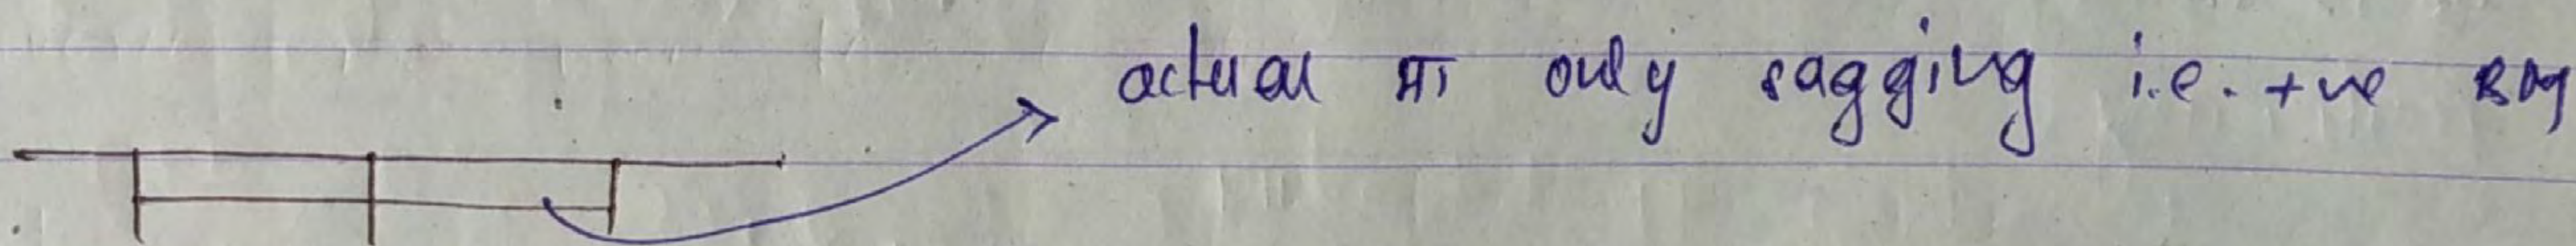 actual मा only sagging i.e. +ve BM